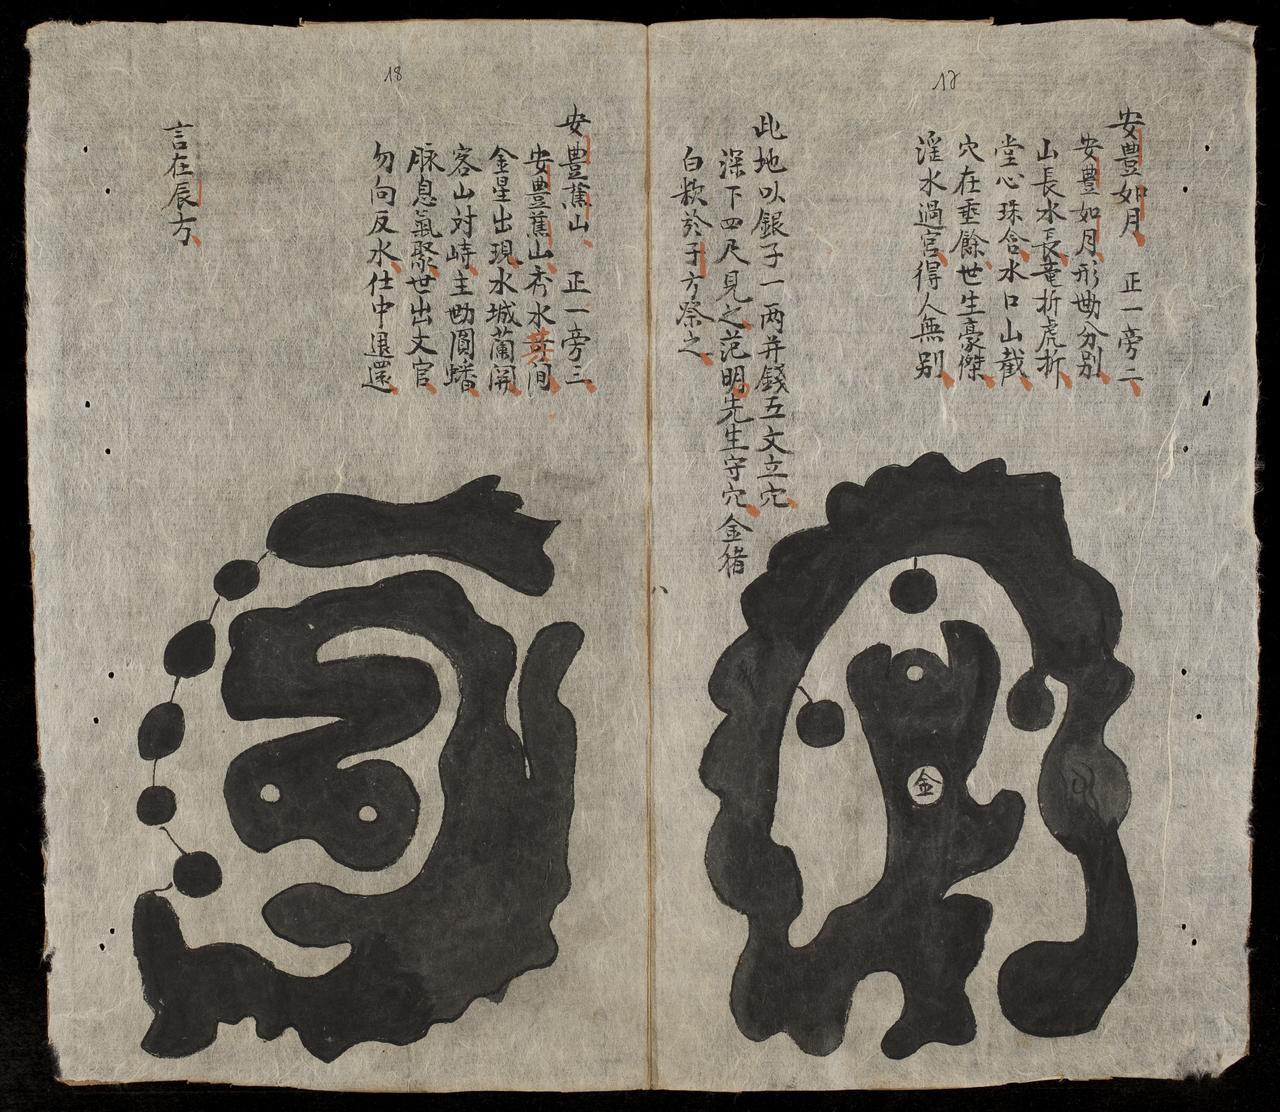 17
安豊如月 正一旁二
安豊如月形㔟分別
山長水長竜折虎折
堂心珠含水口山截
穴在垂餘世生豪傑
淫水過宮得人無别
此地以銀子一两并錢五文立穴
深下四尺見之范明先生守穴金猪
白䊠於子方祭之
金
18
安豊蕉山 正一旁三
安豊蕉山秀水竒间
金星出現水城蘭開
客山対峙主㔟圓蟠
脉息氣聚世出文官
勿向反水仕中退還
言在辰方